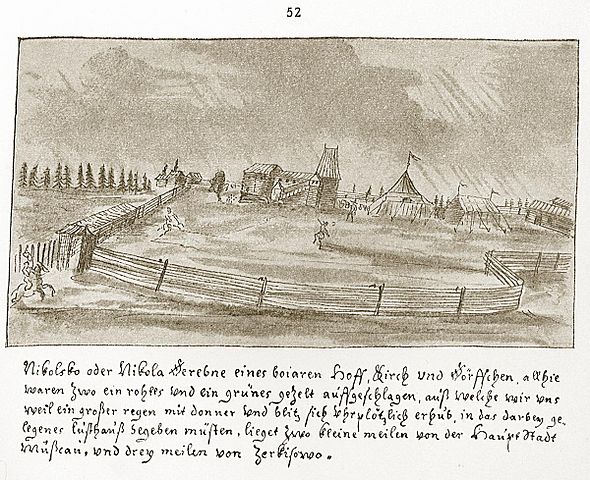 52
Nikolsko oder Nikola Derebne eines boiaren Hoff, Kirch und Dörffchen, alhie
waren zwo ein rohtes und ein grünes gezelt auffgeschlagen, auß welche wir uns
weil ein großer regen mit donner und blitz sich uhrplötzlich erhub, in das darbey ge-
legenes lusthauß begeben müsten, lieget zwo kleine meilen von der Haupt Stadt
Müßcau, und drey meilen von Zerkisowo.